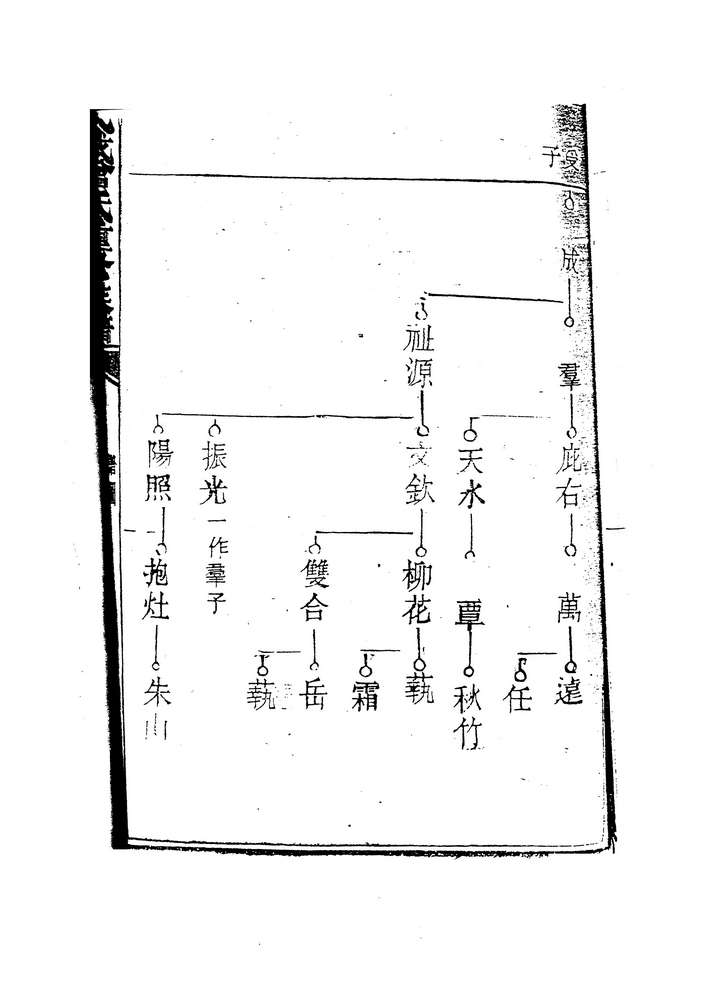 子
成
羣
庇右
萬
遠
任
天水
覃
秋竹
祉源
文欽
柳花
執
霜
雙合
岳
執
振光一作羣子
陽照
抱灶
朱山